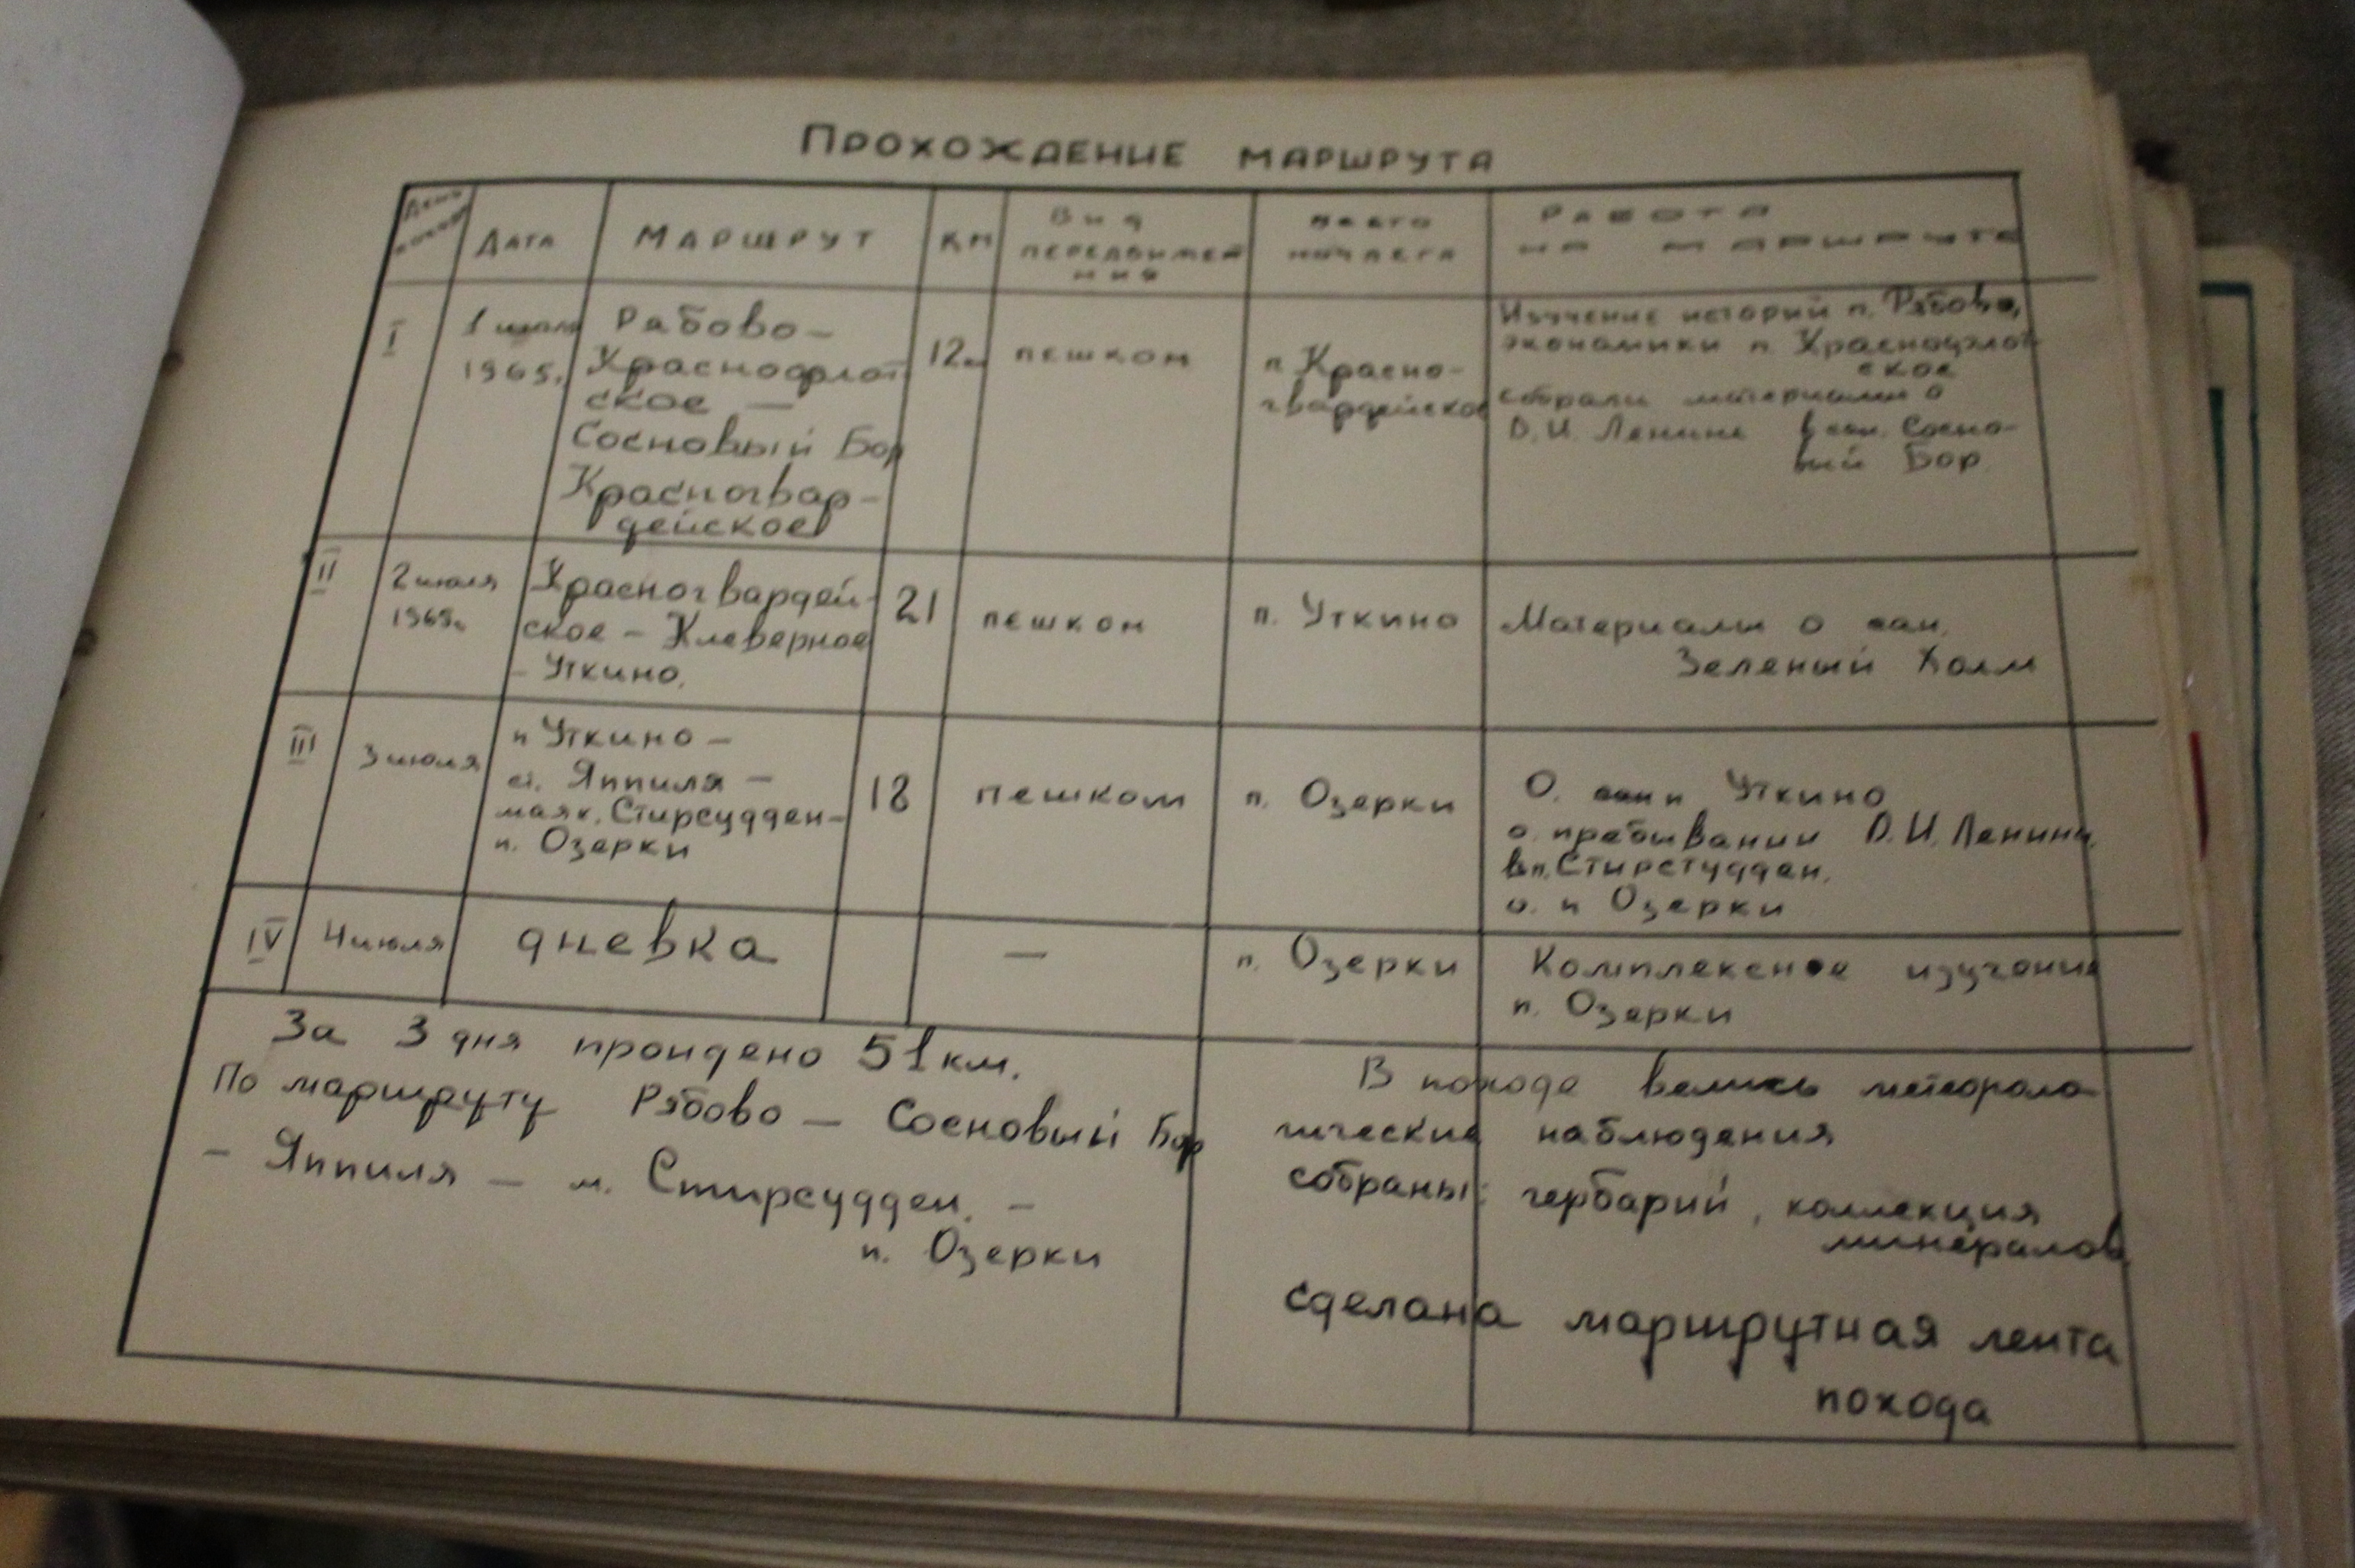 Прохождение маршрута
День похода
Дата
Маршрут
км
Вид передвижения
Место ночлега
Работа на маршруте
I
1 июля
1965г.
Рябово –
Краснофлот
ское —
Сосновый Бор
Красногвар-
дейское
12км
пешком
п. Красно-
гвардейское
Изучение историй п. Рябово,
экономики п. Краснофлот
ское
собрали материалы о
В. И. Ленине в сан. Сосно-
вый Бор
II
2 июля
1965г.
Красногвардей-
ское – Клеверное
– Уткино.
21
пешком
п. Уткино
Материалы о сан.
Зеленый Холм
III
3 июля
п Уткино –
ст. Яппиля –
маяк. Стирсудден –
п. Озерки
18
пешком
п. Озерки
О. п Уткино
о. пребывании В. И. Ленина
в п. Стирстудден.
о. п Озерки
IV
4 июля
дневка
—
п. Озерки
Комплексное изучение
п. Озерки
За 3 дня пройдено 51 км.
По маршруту Рябово – Сосновый Бор
– Яппиля – м. Стирсудден. –
п. Озерки
В походе велись метеороло
гические наблюдения
собраны: гербарий, коллекция
минералов
сделана маршрутная лента
похода